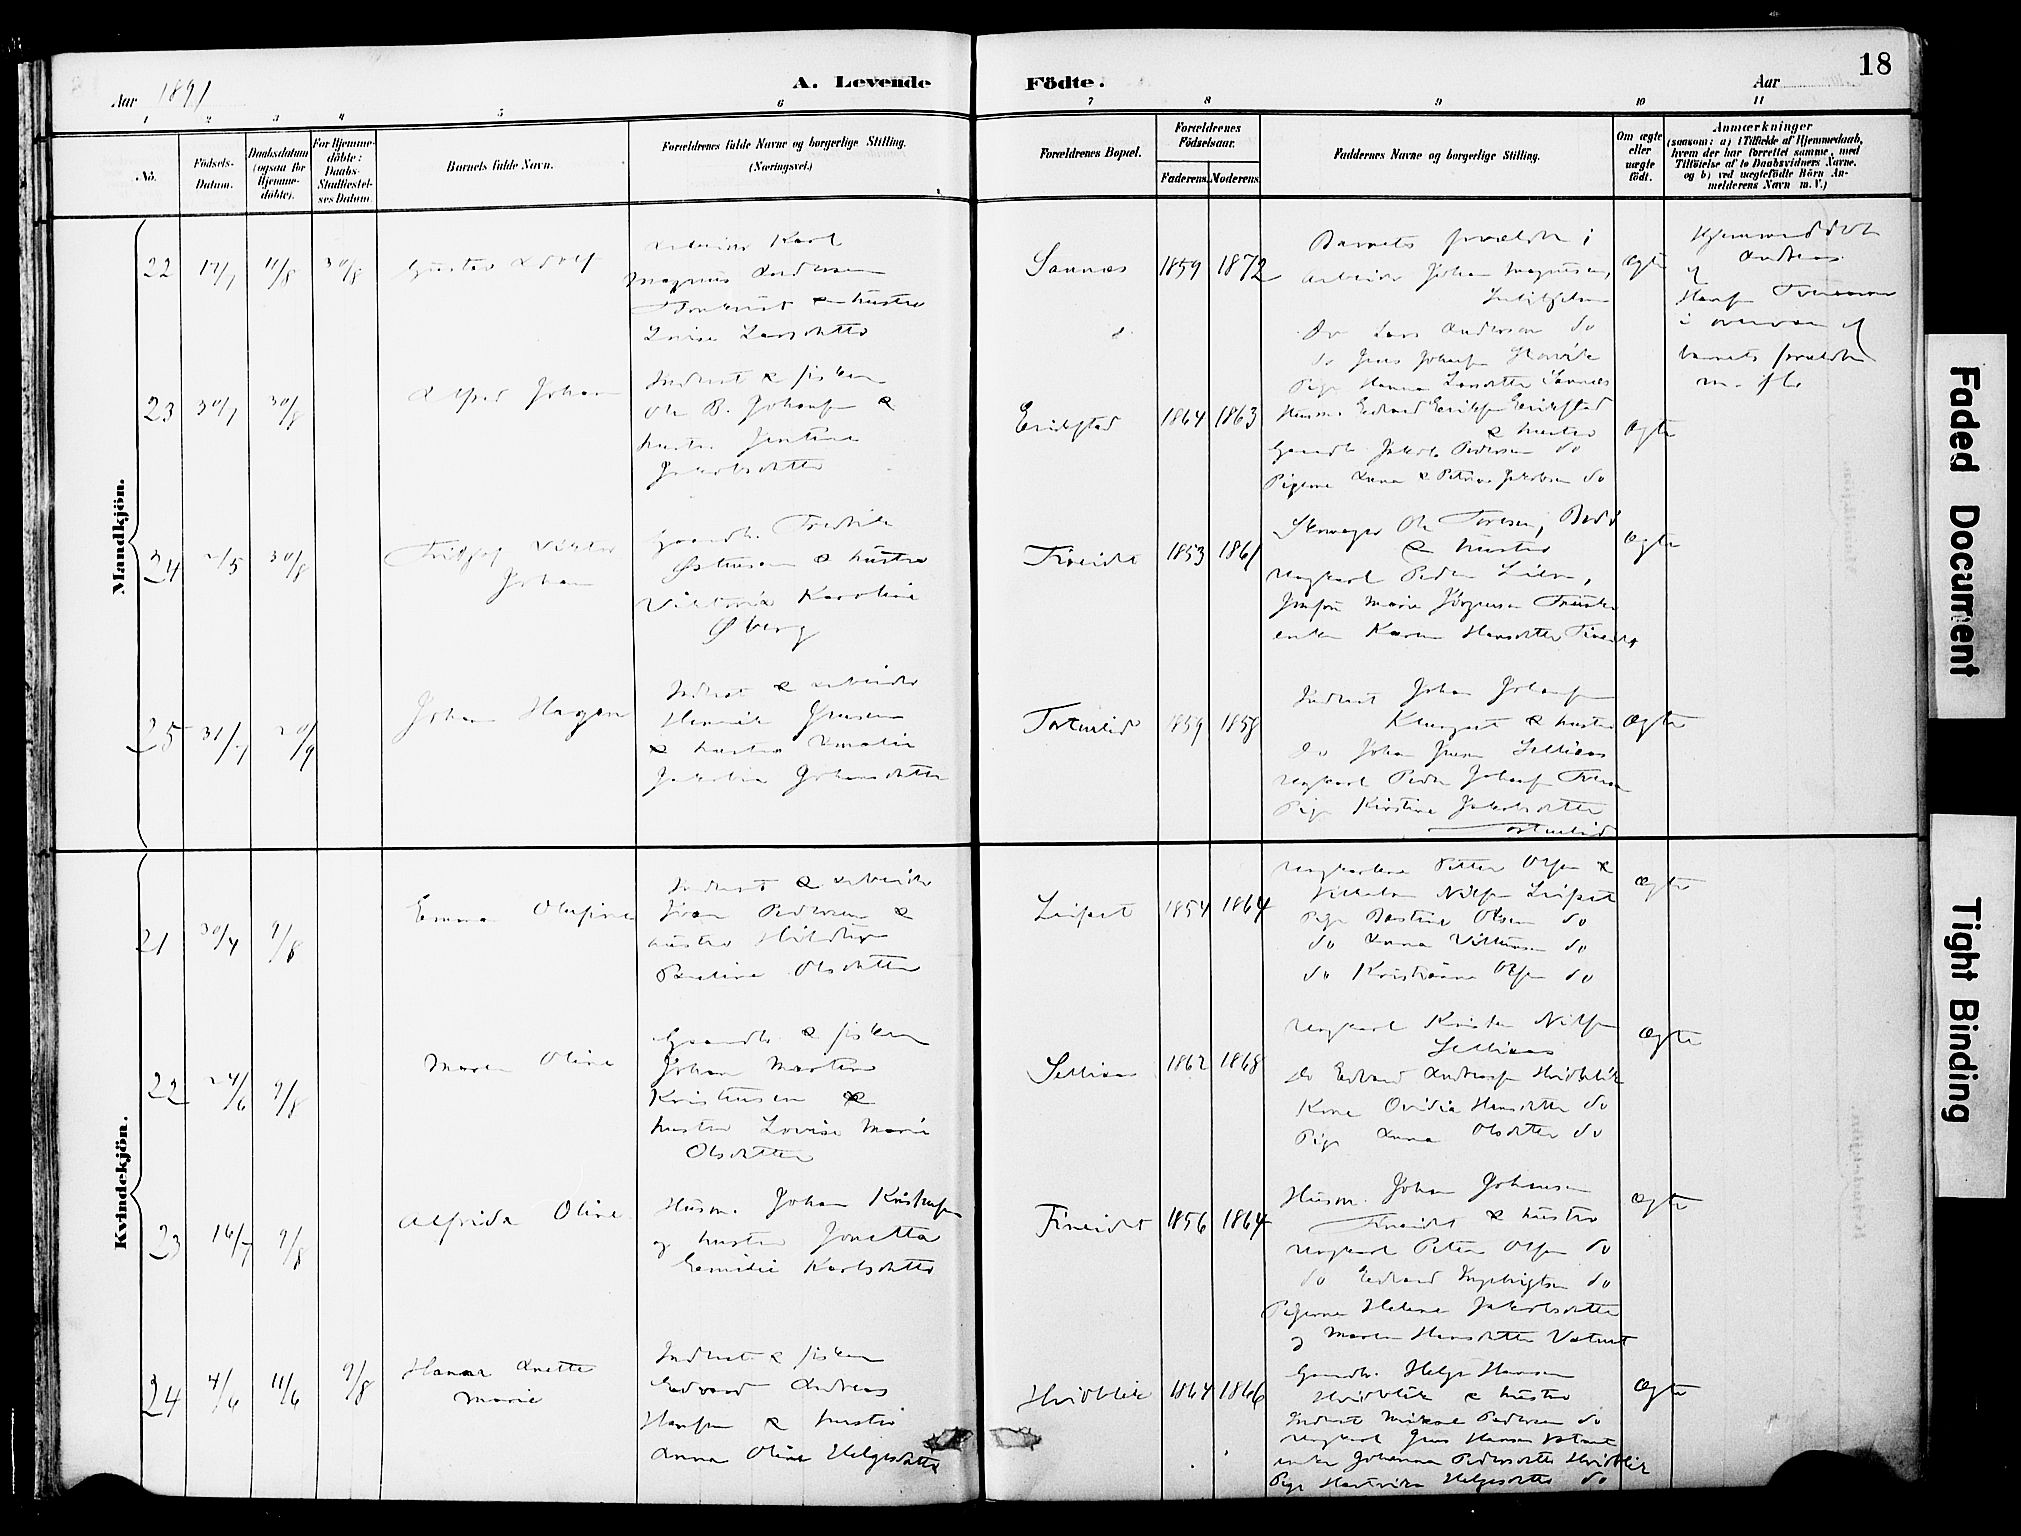 18
Aar 1891
A. Levende
Födte.
Aar
1 2 3 4 5 6 7 8 9 10 11
No.
Födsels-
Datum.
Daabsdatum
(ogsaa for
Hjemme-
döbte).
For Hjemme-
döbte:
Daabs-
Stadfæstel-
ses Datum.
Barnets fulde Navn.
Forældrenes fulde Navne og borgerlige Stilling.
(Næringsvei.)
Forældrenes Bopæl.
Forældrenes
Födselsaar.
Faderens. Moderens.
Faddernes Navne og borgerlige Stilling.
Om ægte
eller
uægte
födt.
Anmærkninger
(saasom: a) i Tilfælde af Hjemmedaab,
hvem der har forrettet samme, med
Tilföielse af to Daabsvidners Navne,
og b) ved uægtefödte Börn An-
melderens Navn m. V.)
Mandkjön.
22
11/8 30/8
Gustav Adolf
arbeider Karl
Magnus Andersen
& hustru
Lovise Larsdatter
Sannæs
1859 1872
Barnets forældre;
arbeider Johan Magnusen,
do Lars Andersen do
do Jens Johansen
Pige Hanna Larsdatter Sannæs
Ægte
Hjemmedöbt
Andreas
i overvær af
barnets forældre
m. fl.
23
30/7 30/8
Alfred Johan
Inderst & fisker
Ole B. Johansen &
hustru Jentine
Jakobsdatter
Erikstad
1864 1863
Husm. Edvard Eriksen Erikstad
& hustru
Gaardb. Jakob Pedersen do
Pigerne Anna & Petrine Jakobsen do
Ægte
24
2/5 30/8
Fridtjof Viktor
Johan
Gaardb. Fredrik
& hustru
Viktoria Karoline
Øberg
Fineidet
1853 1861
Ole Toresen, Bodö
& hustru
Ungkarl Peder
Jomfru Marie Jörgensen
enke Karen Hansdatter Fineidet
Ægte
25
31/7 20/9
Johan Hagen
Inderst & arbeider
Henrik Jensen
& hustru Amalie
Jakobine Johansdatter
Tortenlid
1859 1858
Inderst Johan Johansen
& hustru
do Johan Jensen Setliaas
Ungkarl Peder Johansen
Pige Kirstine Jakobsdatter
Tortenlid
Ægte
Kvindekjön.
21
30/4 9/8
Emma Olufine
Inderst & arbeider
Iver Pedersen &
hustru
Pauline Olsdatter
Leifset
1854 1864
Ungkarlene Petter Olsen &
Vilhelm Nilsen Leifset
Pige Bastine Olsen do
do Anna do
do Kristianne Olsen do
Ægte
22
24/6 9/8
Maren Oline
Gaardb. & fisker
Johan Martin
Kristensen &
hustru Lovise Marie
Olsdatter
Setliaas
1862 1868
Ungkarl Krister Nilsen
Setliaas
do Edvard Andreasen Hvidblik
Kone Ovidia Hansdatter do
Pige Anna Olsdatter do
Ægte
23
16/7 9/8
Alfrida Oline
Husm. Johan Kristensen
og hustru Jonetta
Emilie Karlsdatter
Fineidet
1856 1864
Husm. Johan Johansen
Fineidet & hustru
Ungkarl Peter Olsen do
do Edvard Ingebrigtsen do
Pigerne Helene Jakobsdatter
og Maren Hansdatter Vatnet
Ægte
24
4/6 11/6 9/8
Hanna Anette
Marie
Inderst & fisker
Edvard Andreas
Hansen & hustru
Anna Oline Helgesdatter
Hvidblik
1864 1866
Gaardb. Helge Hansen
Hvidblik & hustru
Inderst Mikal Pedersen do
Ungkarl Jens Hansen Vatnet
enke Johanna Pedersdatter Hvidblik
Pige Hartvika Helgesdatter do
Ægte
Faded Document
Tight Binding